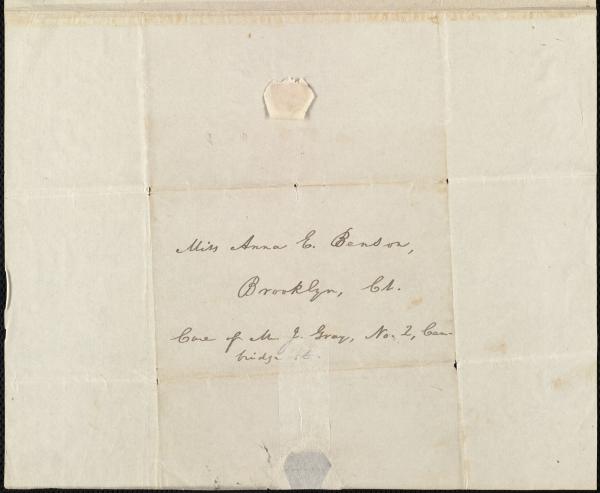 Miss Anna E. Benson,
Brooklyn, Ct.
Care of M. J. Gray, No. 2, Cam-
bridge St.